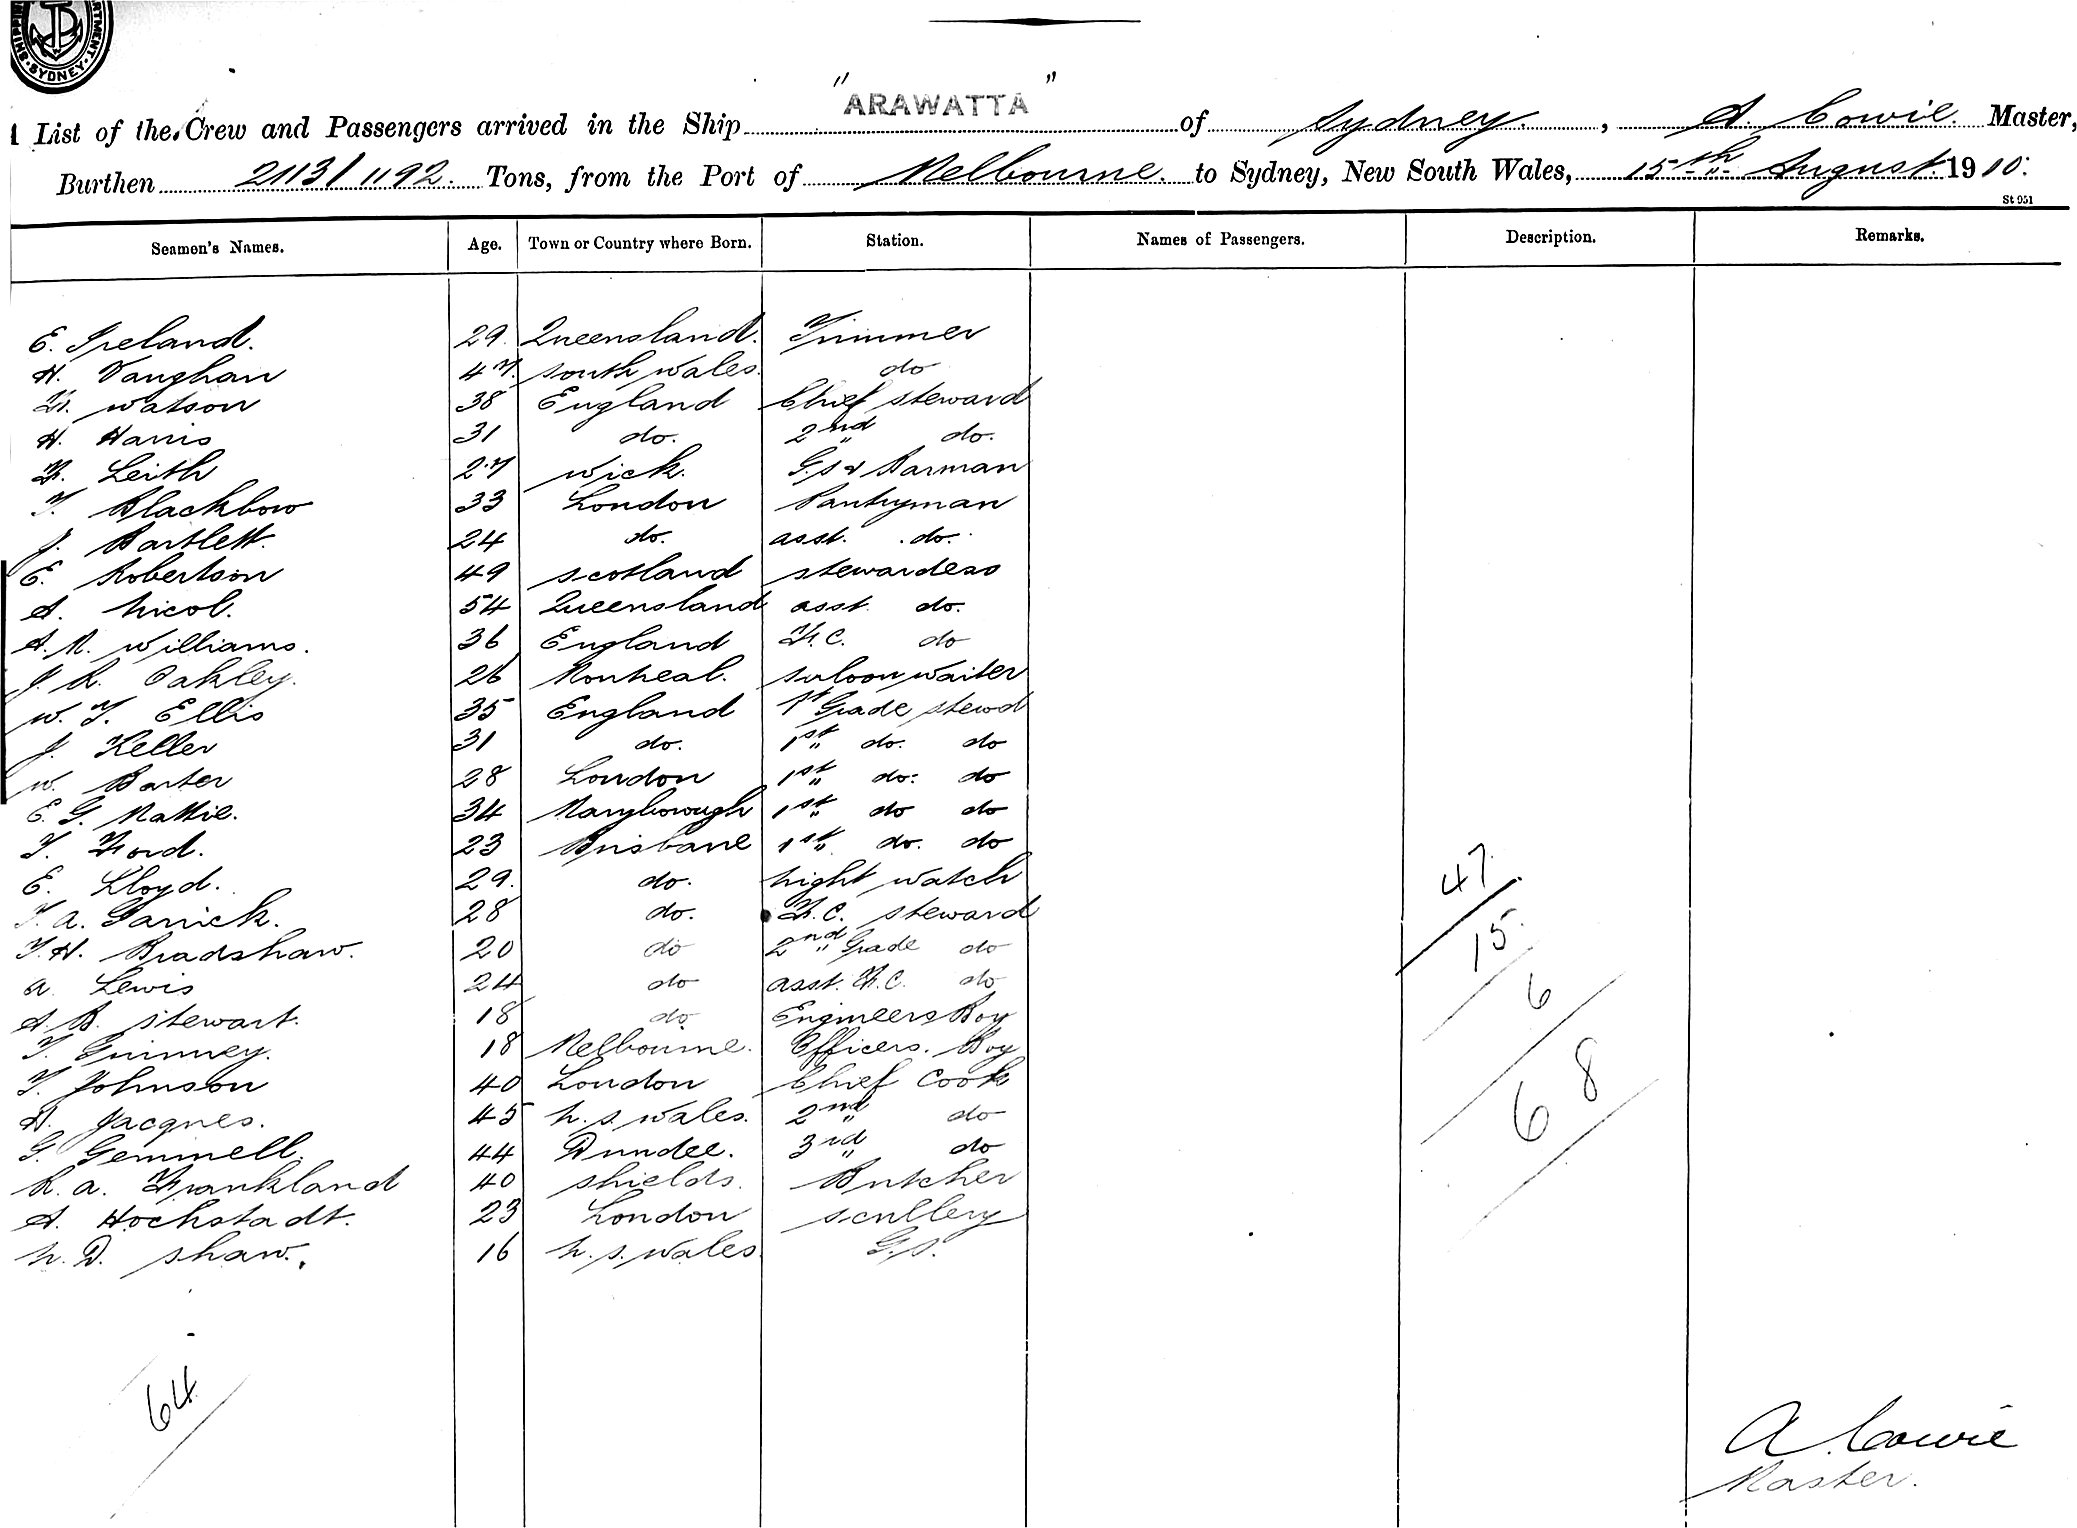 SHIPPING DEPARTMENT. SYDNEY.
" ARAWATTA "
List of the Crew and Passengers arrived in the Ship of Sydney, A. Cowie. Master,
Burthen 2113/1192. Tons, from the Port of Melbourne. to Sydney, New South Wales, 15th August. 1910.
St 951
Seamen's Names. Age. Town or Country where Born. Station. Names of Passengers. Description. Remarks.
E. Ireland. 29. Queensland. Trimmer
H. Vaughan 47. South Wales. do
Watson 38 England Chief Steward
H. Harris 31 do. 2nd do.
Leith 27 Wick. G.S & Barman
T. Blackbow 33 London Pantryman
J. Bartlett. 24 do. asst. do.
E. Robertson 49 Scotland Stewardess
A. Nicol. 54 Queensland asst. do.
A. R. Williams. 36 England F.C. do
J. R. Oakley. 26 Montreal. Saloon Waiter
W. T. Ellis 35 England 1st Grade Stewd
J. Keller 31 do. 1st do. do
W. Barter 28 London 1st do. do
E. G. Mattie. 34 Maryborough 1st do do
T. Ford. 23 Brisbane 1st do. do
E. Lloyd. 29. do. Night Watch
T. A. Garrick. 28 do. F.C. Steward
T. H. Bradshaw. 20 do 2nd Grade do
A. Lewis 24 do asst. F.C. do
A. B. Stewart. 18 do. Engineers Boy
T. Guinney. 18 Melbourne. Officers. Boy
T. Johnson 40 London Chief Cook
Jacques. 45 N. S. Wales. 2nd do
G. Gemmell. 44 Dundee. 3rd do
R. A. Frankland 40 Shields. Butcher
A. Hochstadt. 23 London Scullery
N. D. Shaw. 16 N. S. Wales. G.S.
47
15
6
68
64
A. Cowie
Master.